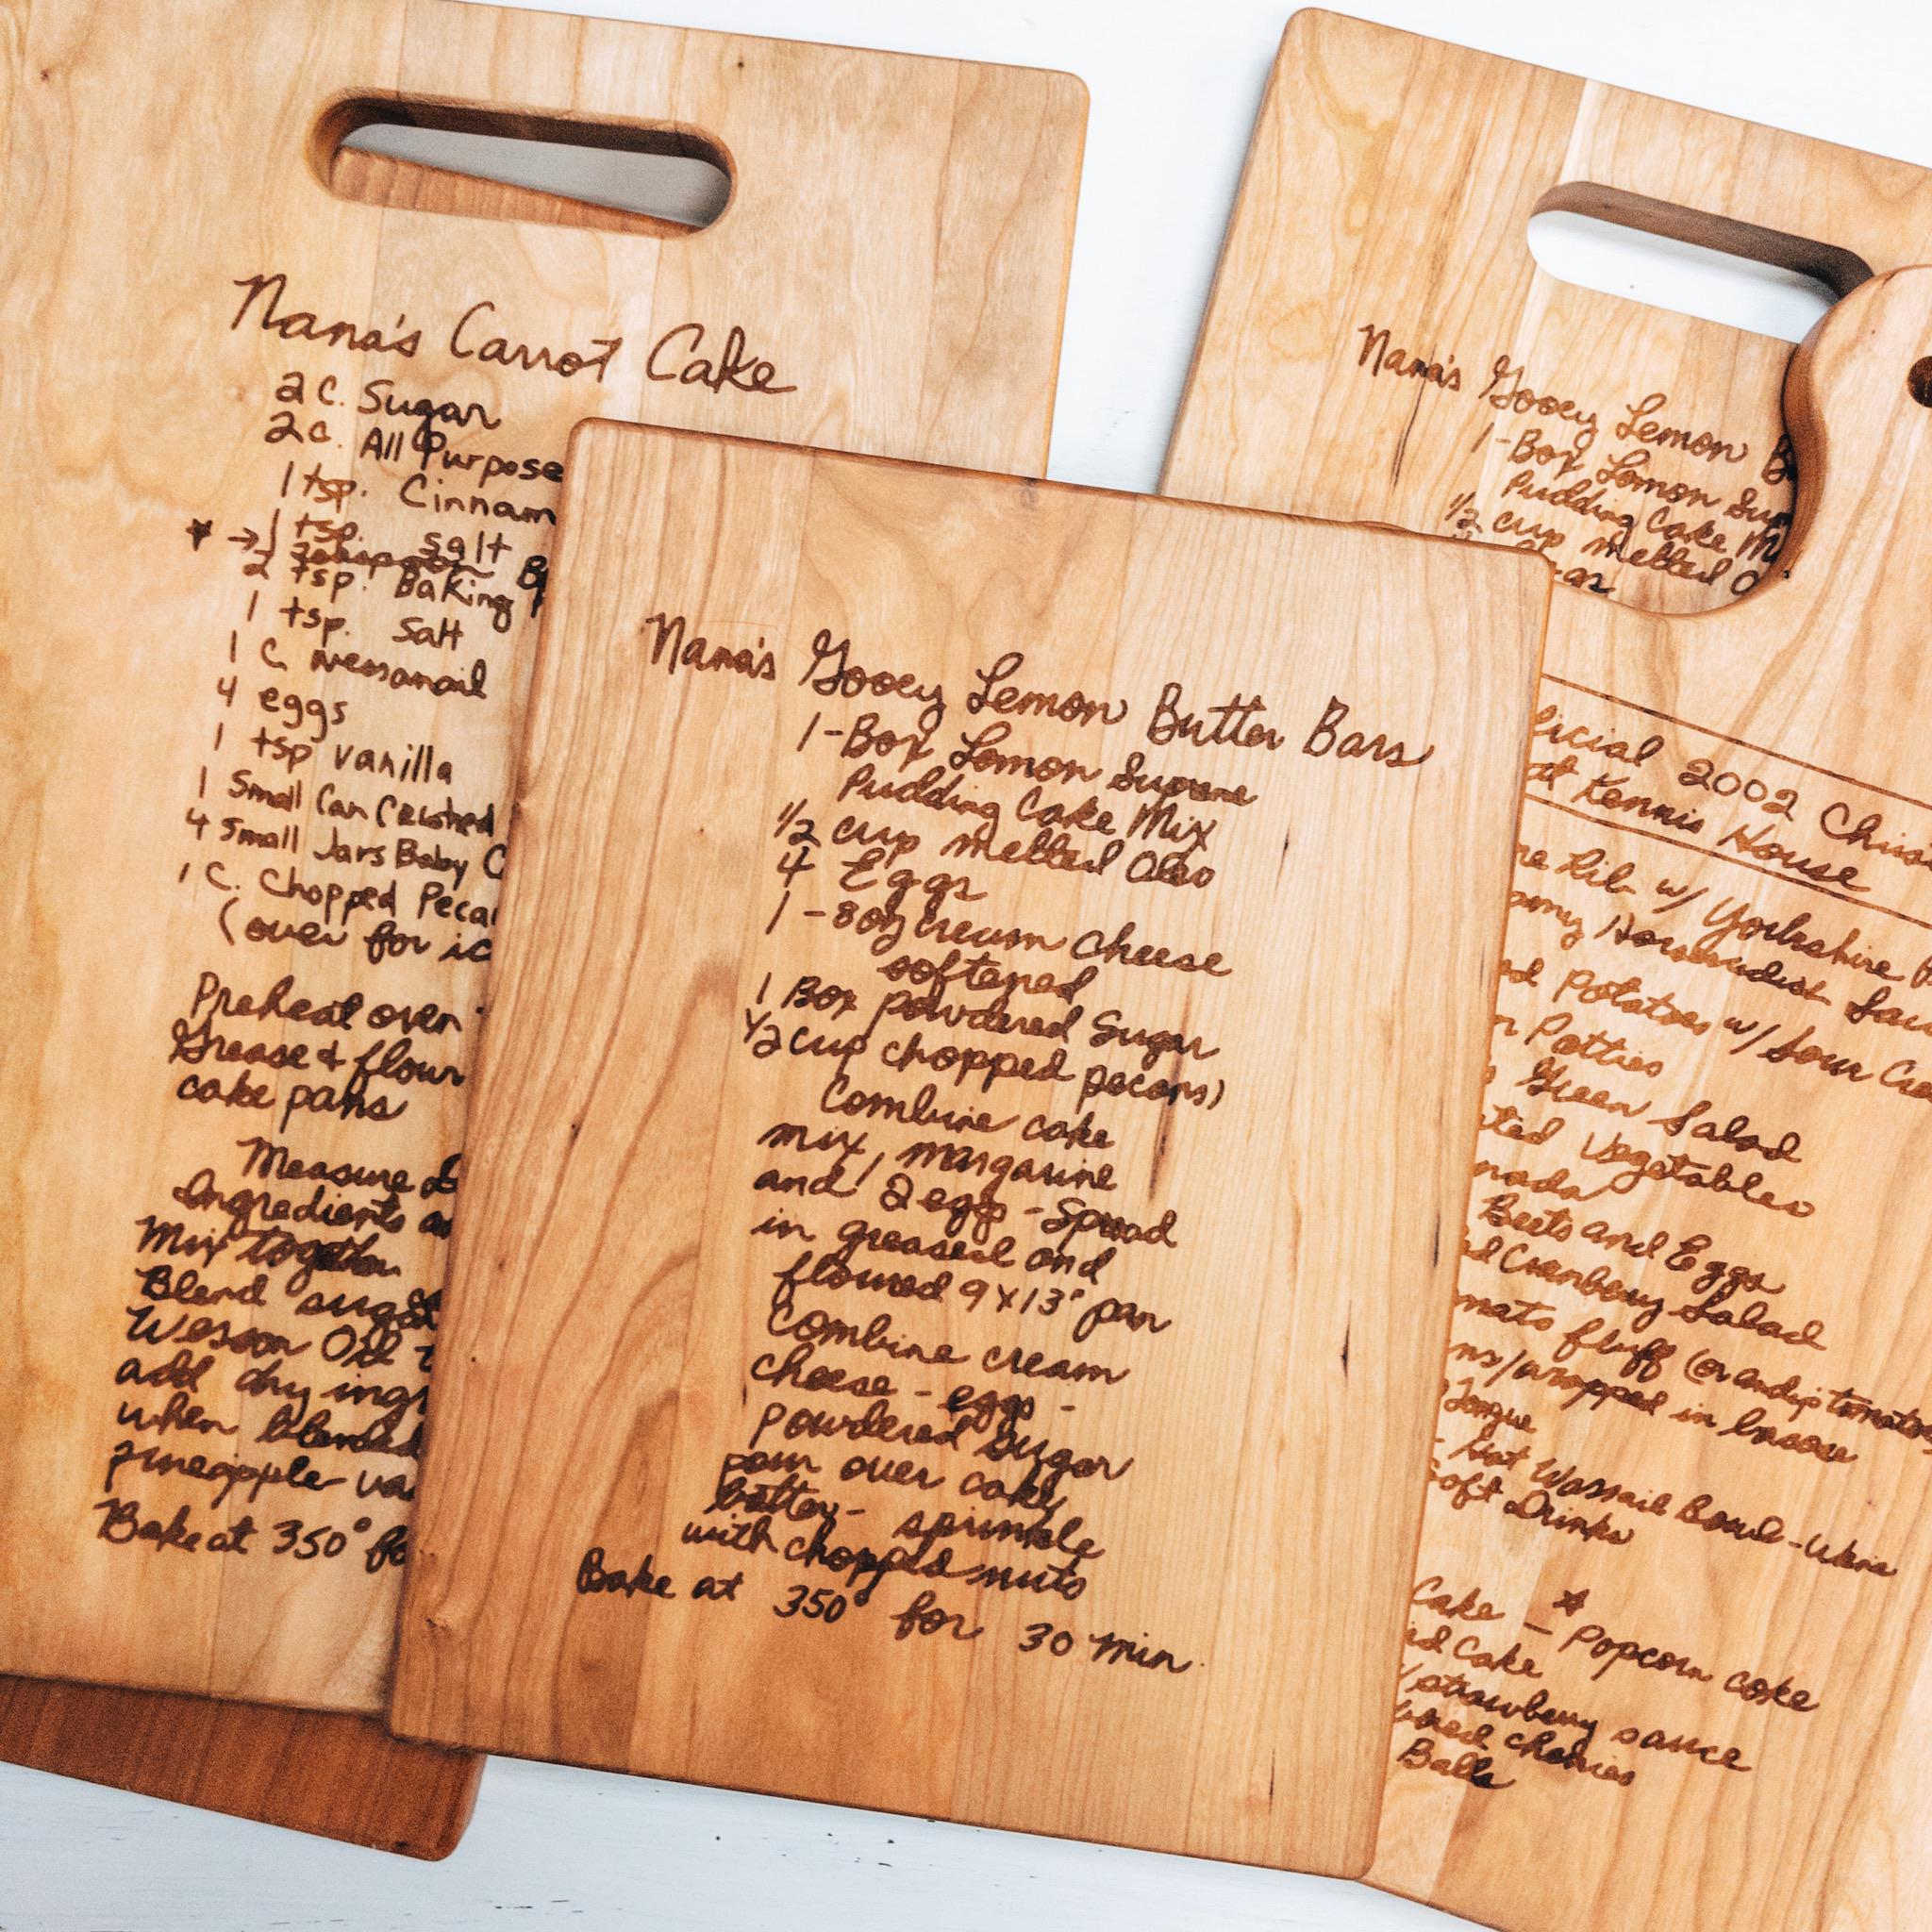 Nana's Carrot Cake
2 C. Sugar
2 c. All Purpose
1 tsp. Cinnam
* → 1 tsp. salt
2 tsp. Baking
1 tsp. Salt
1 C.
4 eggs
1 tsp vanilla
1 Small Can Crushed
4 Small Jars Baby C
1 C. Chopped Pecan
(over for ic
Preheat oven
Grease & flour
cake pans
Measure
Ingredients
Mix together
Blend sugar
Wesson Oil
add dry ingr
when blended
pineapple va
Bake at 350° fo
Nana's Gooey Lemon Butter Bars
1-Box Lemon Supreme
Pudding Cake Mix
1/2 cup melted Oleo
4 Eggs
1 - 8oz cream cheese
softened
1 Box powdered Sugar
1/2 cup chopped pecans
Combine cake
mix, margarine
and 2 eggs - Spread
in greased and
floured 9x13" pan
Combine cream
cheese - eggs -
powdered sugar
pour over cake
batter - sprinkle
with chopped nuts
Bake at 350° for 30 min.
Nana's Gooey Lemon B
1-Box Lemon Sup
Pudding Cake M
1/2 cup melted O
ficial 2002 Chris
at Kennis House
me Rib w/ Yorkshire P
amy Horseradish Sau
ed Potatoes w/ Sour Cre
Patties
Green Salad
Vegetables
Beets and Eggs
ed Cranberry Salad
mato fluff (or
ns/wrapped in
Tongue
- Hot Wassail Bowl - Wine
Soft Drinks
Cake - * Popcorn cake
Cake
/strawberry sauce
cherries
Balls